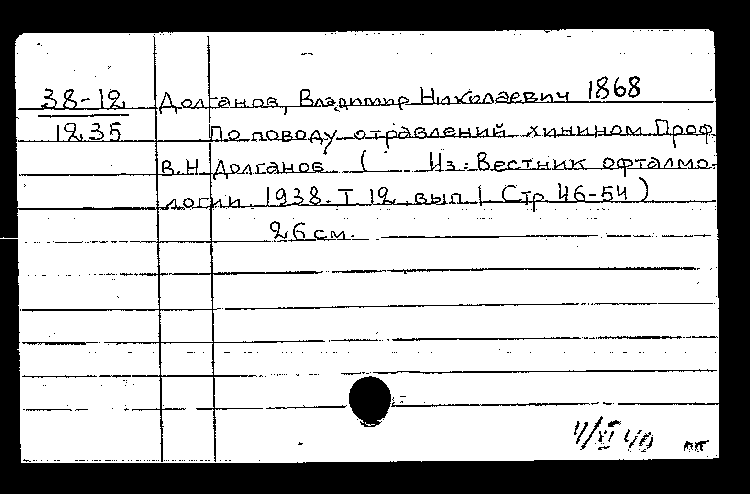 38-12 Долганов, Владимир Николаевич 1868
1235 По поводу отравлений хинином Проф.
В.Н. Долганов ( Из: Вестник офталмо-
логии. 1938. Т 12. вып. 1 Стр 46-54)
26 см.
4/XI 40